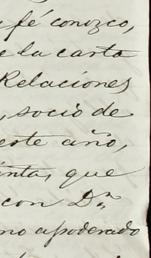 fé conozco,
e la carta
Relaciones
, socio de
este año,
inta, que
con Dn
mo apoderado